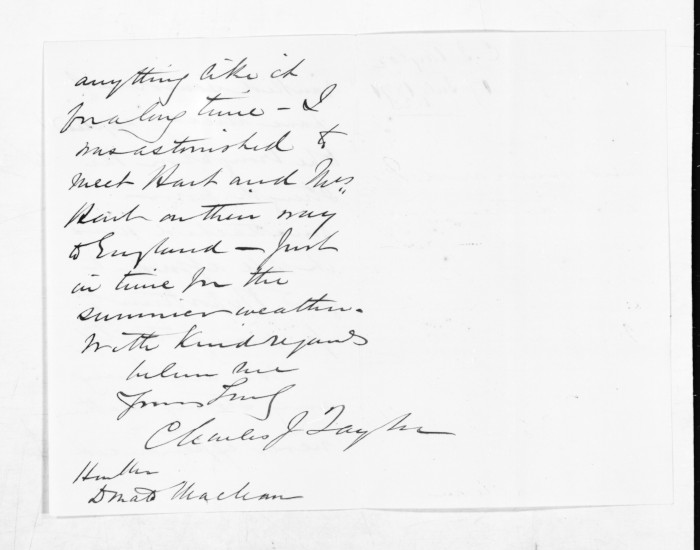 anything like it
for a long time – I
was astonished to
meet Hart and Mrs
Hart on their way
to England – Just
in time for the
summer weather.
With Kind regards
believe me
Yours truly
Charles J Taylor
Hon Mr
Donald Maclean